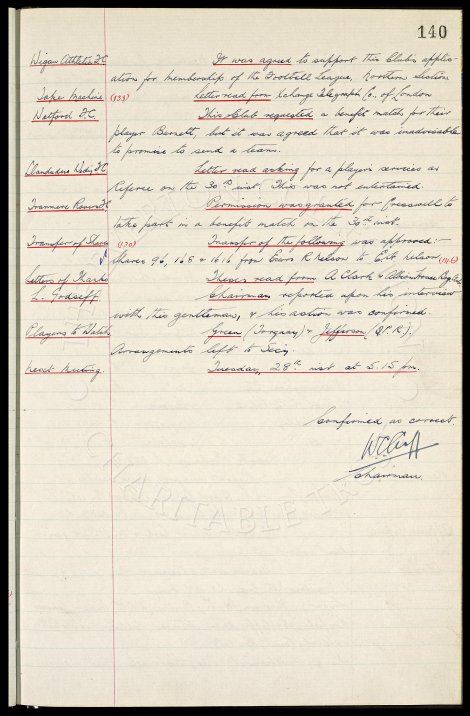 140
Wigan Athletic F.C. It was agreed to support this Club's applic-
ation for membership of the Football League, Northern Section
Tape Machine (133) Letter read from Exchange Telegraph Co., of London
Watford F.C. This Club requested a benefit match for their
player Barnett, but it was agreed that it was inadvisable
to promise to send a team.
Llandudno Wedy F.C. Letter read asking for a player's services as
Referee on the 30th inst. This was not entertained.
Tranmere Rovers F.C. Permission was granted for Cresswell to
take part in a benefit match on the 30th inst.
Transfer of Shares (130) Transfer of the following was approved:-
Shares 96, 168 & 1616 from Exors R Nelson to Nelson (146)
Letters of Thanks These read from A Clark & Albion House
L. Godseff Chairman reported upon his interview
with this gentleman, & his action was confirmed.
Players to Watch Green (Torquay) & Jefferson (Q.P.R).
Arrangements left to Secy.
Next Meeting. Tuesday, 28th inst at 5.15 pm.
Confirmed as correct.
W.C. Cuff
Chairman.
CHARITABLE TRUST